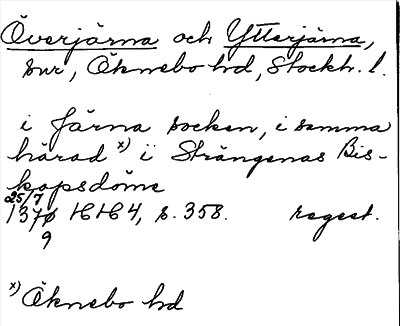 Överjärna och Ytterjärna,
snr, Öknebo hd, Stockh. l.
i Järna socken, i samma
härad x) i Strängenäs Bis-
kopsdöme
25/7
1370 HH4, s. 358. regest.
9
x) Öknebo hd